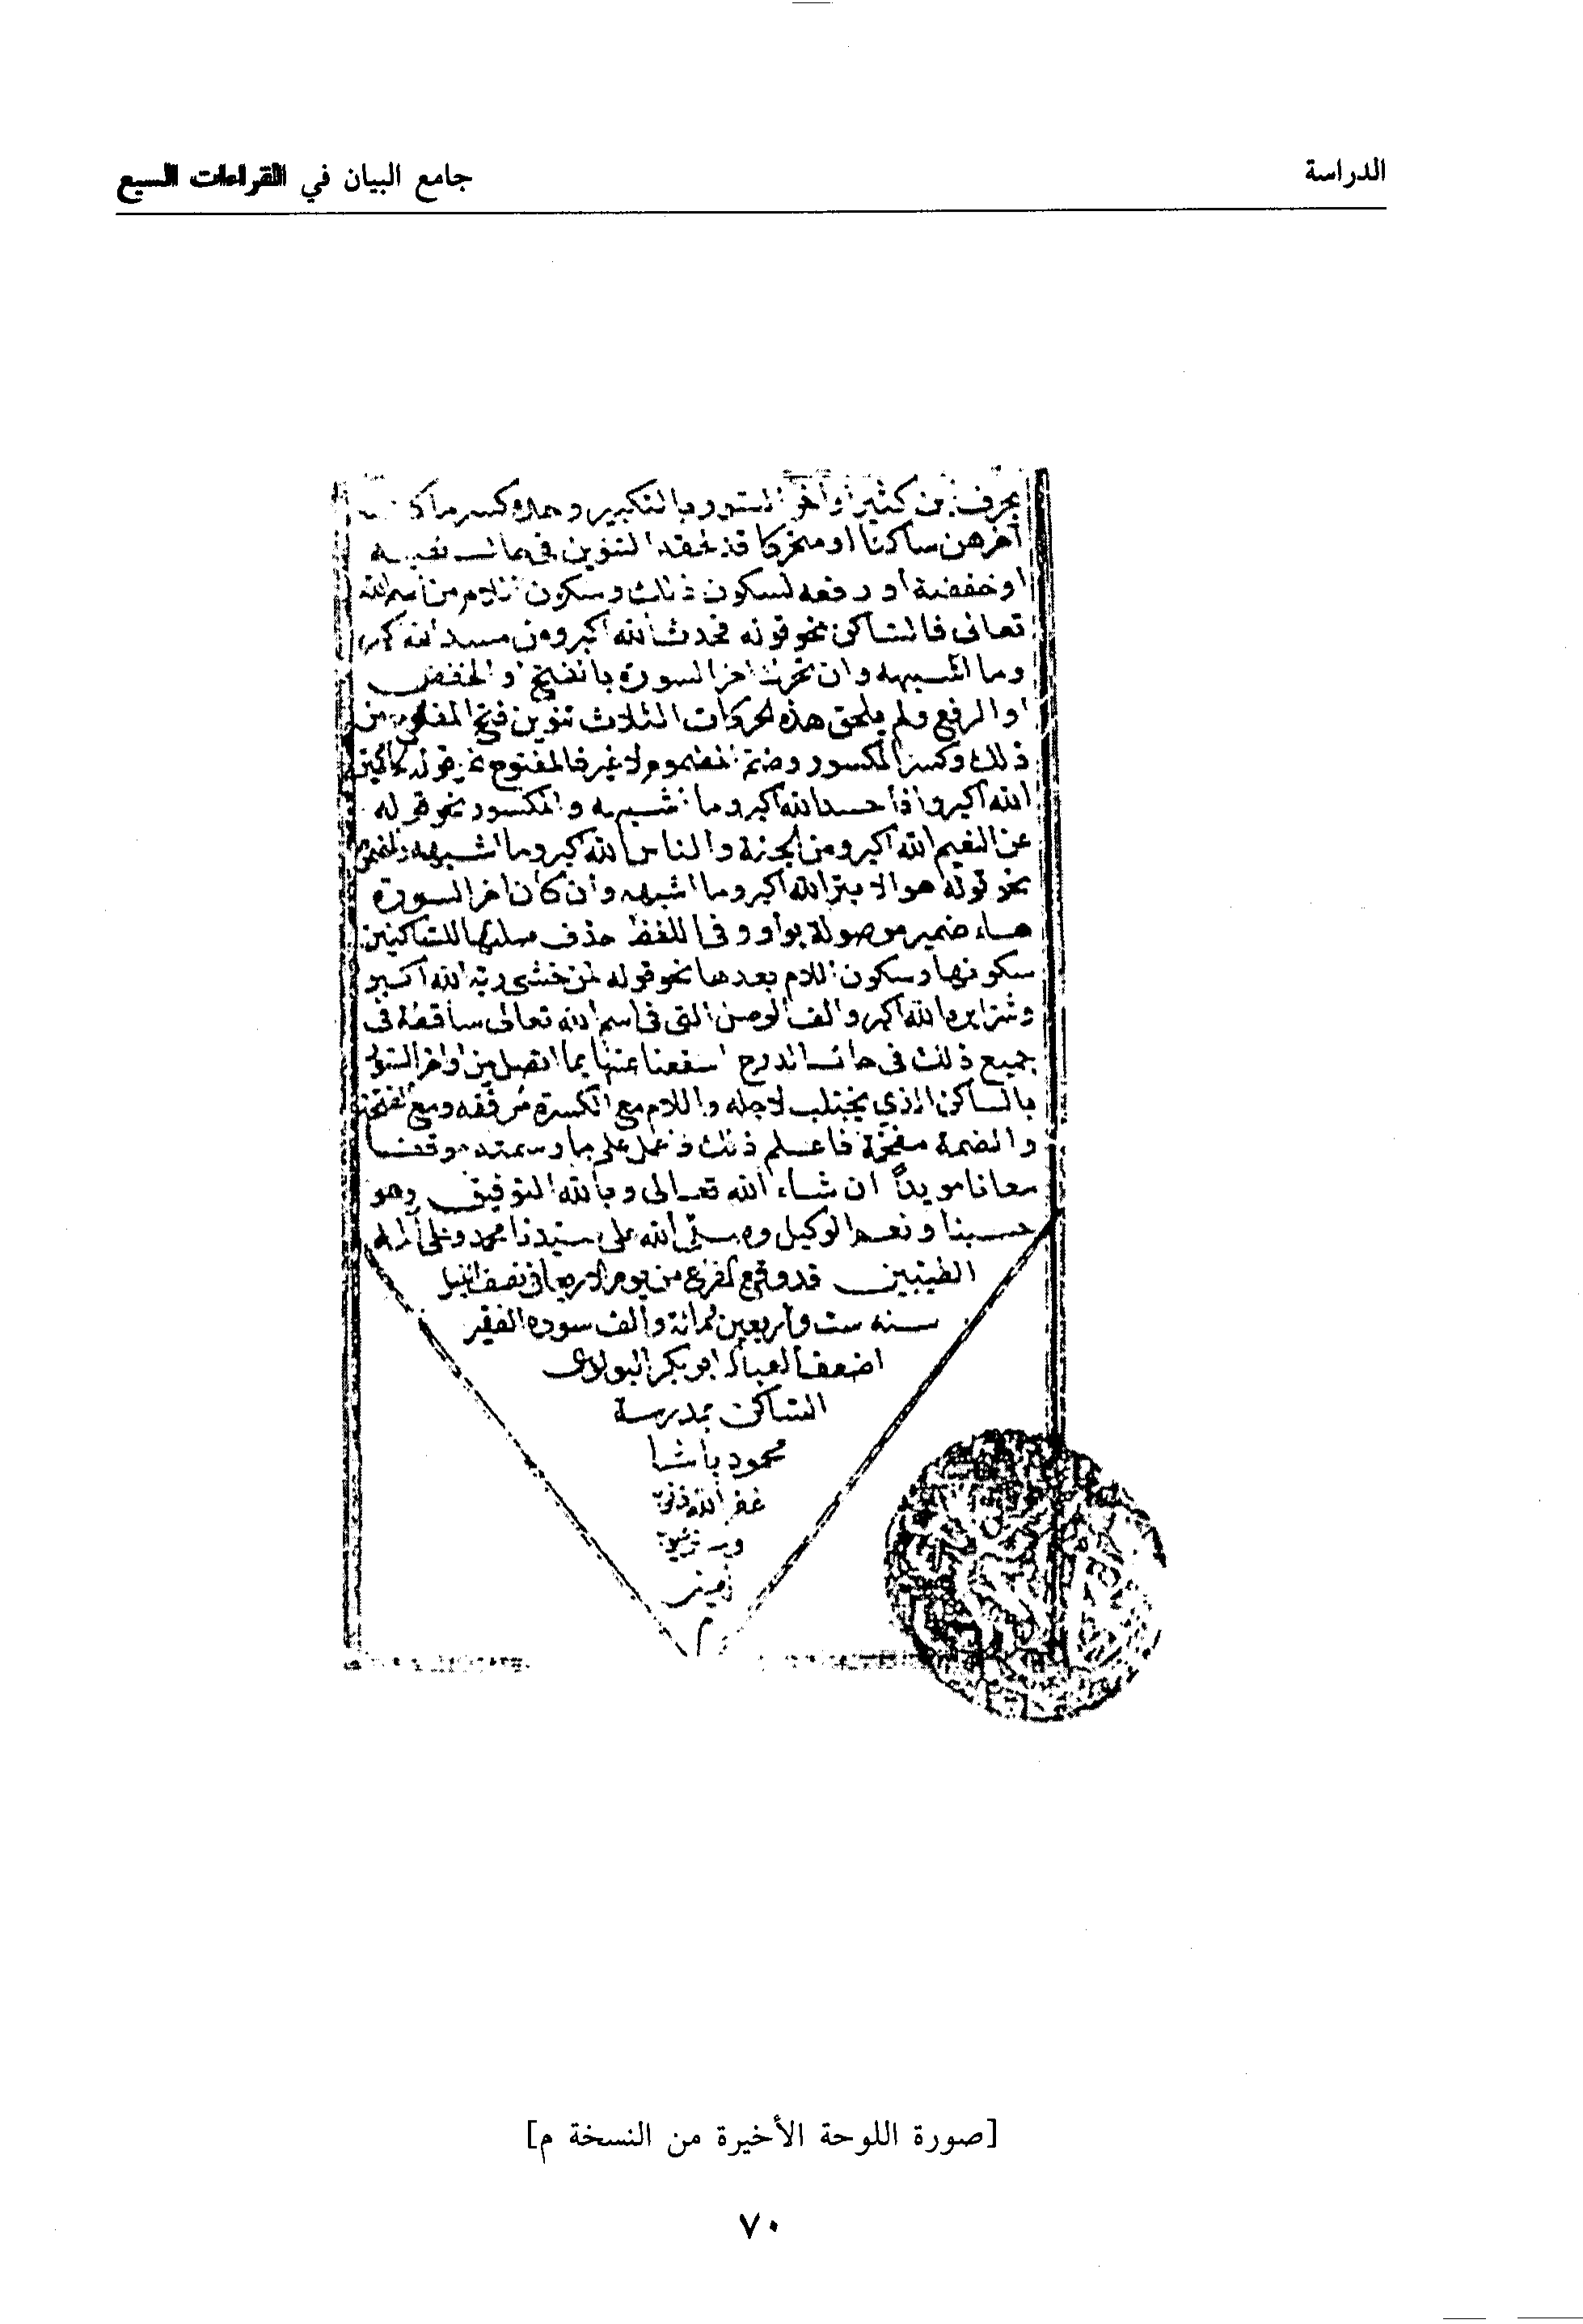 الدراسة
جامع البيان في القراءات السبع
آخرهن ساكنا او متحركا قد لحقه التنوين في حال نصبه
او خفضه أو رفعه لسكون ذلك وسكون اللام من اسم الله
تعالى فالساكن نحو قوله فحدث الله اكبر ومن مسد الله اكبر
وما اشبهه وان تحرك اخر السورة بالفتح او الخفض
او الرفع ولم يلحق هذه الحركات الثلاث تنوين فتح المفتوح من
ذلك وكسر المكسور وضم المضموم لا غير فالمفتوح نحو قوله الحاكمين
الله اكبر واذا حسد الله اكبر وما اشبهه والمكسور نحو قوله
عن النعيم الله اكبر ومن الجنة والناس الله اكبر وما اشبهه والمضموم
نحو قوله هو الابتر الله اكبر وما اشبهه وان كان اخر السورة
هاء ضمير موصولة بواو في اللفظ حذف صلتها للساكنين
سكونها وسكون اللام بعدها نحو قوله لمن خشى ربه الله اكبر
وشرا يره الله اكبر والف الوصل التى فى اسم الله تعالى ساقطة فى
جميع ذلك فى حال الدرج استغنا عنها بما اتصل من اواخر السور
بالساكن الذي يجتلب لاجله واللام مع الكسرة مرققه ومع الفتحة
والضمة مفخمة فاعلم ذلك واعمل على ما رسمته موفقا
معانا مويدا ان شاء الله تعالى وبالله التوفيق وهو
حسبنا ونعم الوكيل وصلى الله على سيدنا محمد وعلى آله
الطيبين قد وقع الفراغ من يوم الاربعا فى نصف الليل
سنه ست واربعين مائة والف سوده الفقير
اضعف العباد ابو بكر البولوى
الساكن بمدرسة
محمود باشا
غفر الله ذنوبه
امين
م
[صورة اللوحة الأخيرة من النسخة م]
٧٠